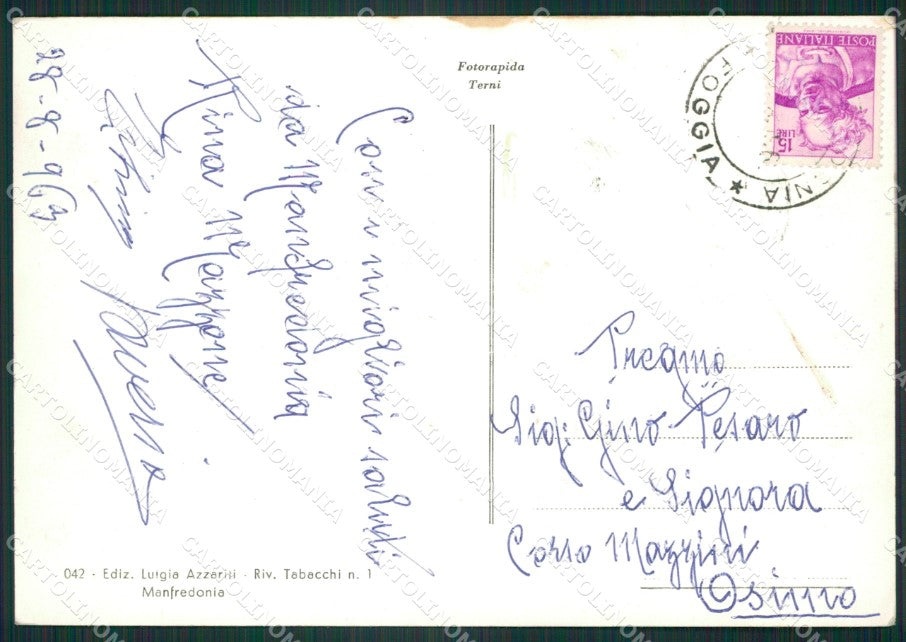 Fotorapida
Terni
POSTE ITALIANE
15
LIRE
FOGGIA
Con i migliori saluti
da Manfredonia
Rina Mazzoni
28-8-963
Pregmo
Sig: Gino Pesaro
e Signora
Corso Mazzini
Osimo
042 - Ediz. Luigia Azzariti - Riv. Tabacchi n. 1
Manfredonia
CARTOLINOMANIA